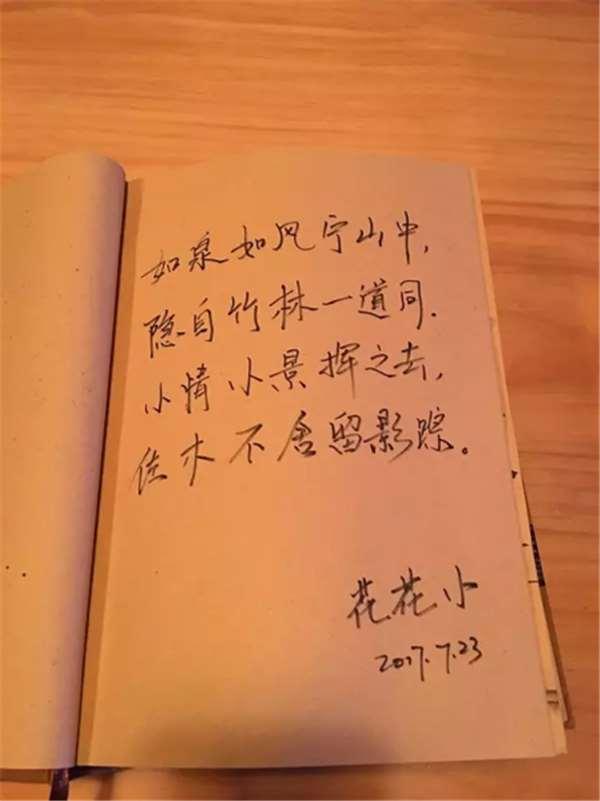 如泉如风宁山中，
隐自竹林一道同．
小情小景挥之去，
佳木不舍留影踪。
花花小
2017.7.23